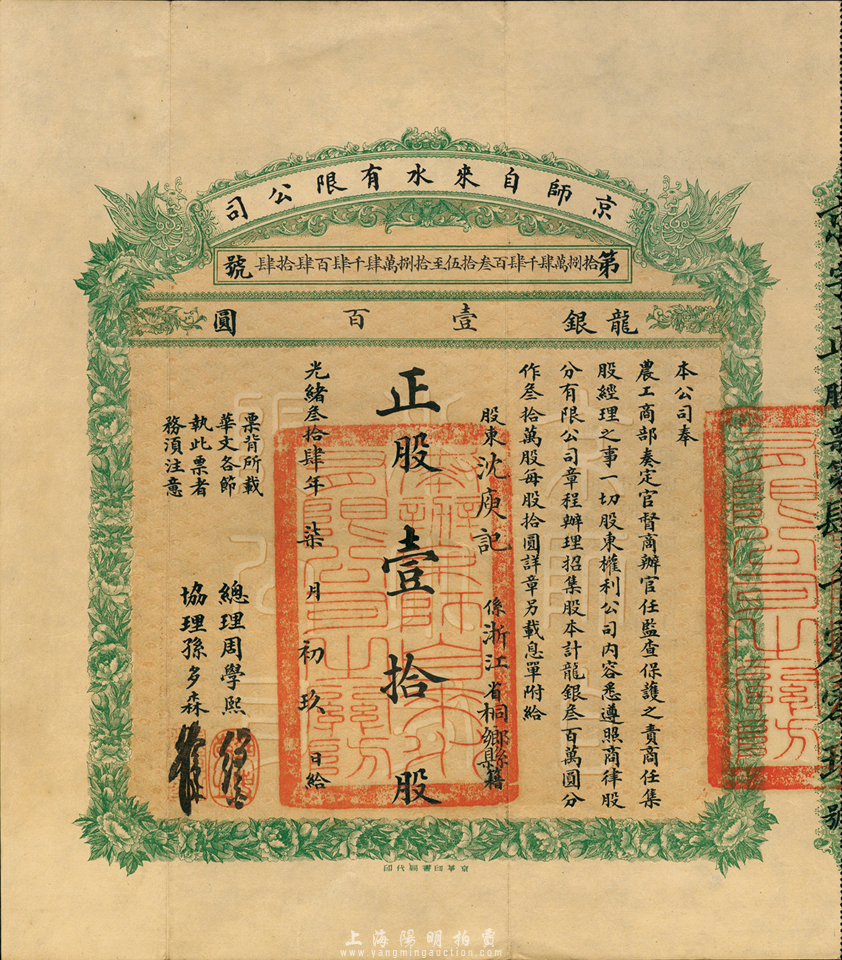 京師自來水有限公司
第拾捌萬肆千肆百叁拾伍至拾捌萬肆千肆百肆拾肆號
龍銀壹百圓
本公司奉
農工商部奏定官督商辦官任監查保護之責商任集
股經理之事一切股東權利公司內容悉遵照商律股
分有限公司章程辦理招集股本計龍銀叁百萬圓分
作叁拾萬股每股拾圓詳章另載息單附給
股東沈庾記 係浙江省桐鄉縣籍
正股壹拾股
光緒叁拾肆年柒月初玖日給
票背所載
華文各節
執此票者
務須注意
總理周學熙
協理孫多森
京華印書局代印
上海陽明拍賣
www.yangmingauction.com